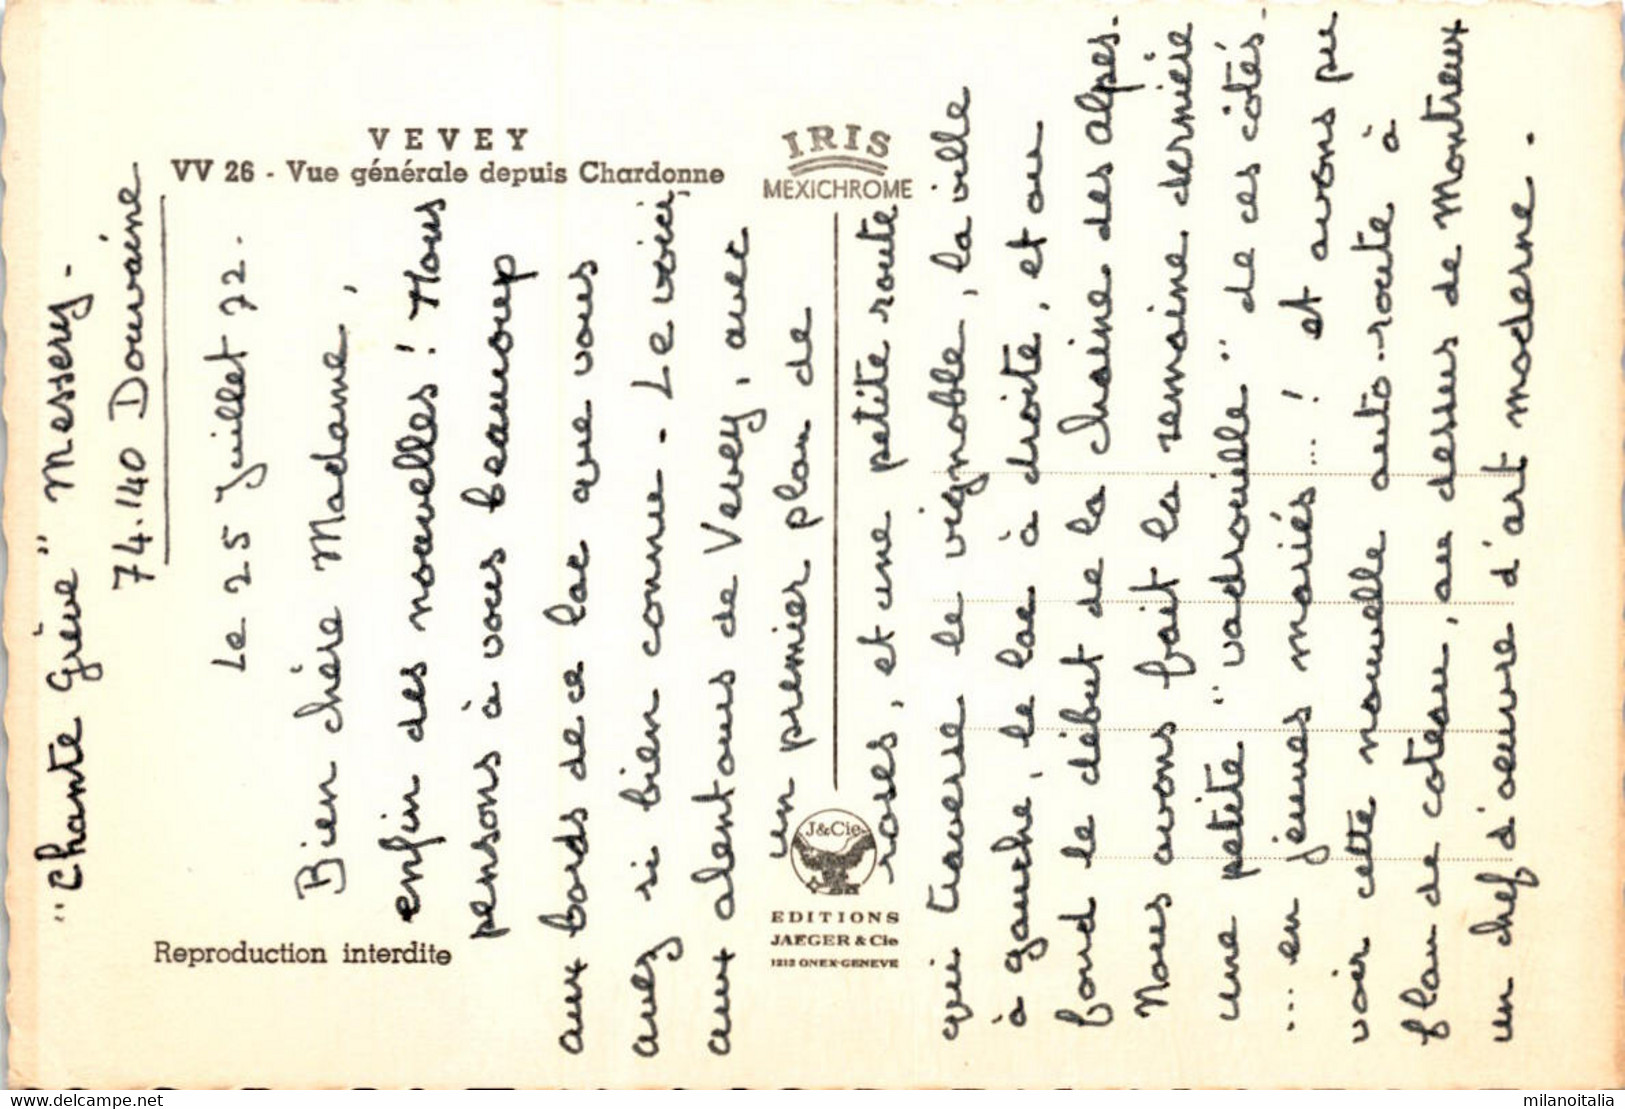 VEVEY
VV 26 - Vue générale depuis Chardonne
IRIS
MEXICHROME
"Chante Grève" Messery -
74.140 Douvaine
Le 25 Juillet 72.
Bien chère Madame,
enfin des nouvelles ! Nous
pensons à vous beaucoup
aux bords de ce lac que vous
avez si bien connu - Le voici,
aux alentours de Vevey, avec
un premier plan de
roses, et une petite route
qui traverse le vignoble, la ville
à gauche, le lac à droite, et au
fond le début de la chaîne des Alpes.
Nous avons fait la semaine dernière
une petite "vadrouille" de ces côtés -
... en jeunes mariés ... ! et avons pu
voir cette nouvelle auto-route à
flan de coteau, au dessus de Montreux
un chef d'oeuvre d'art moderne.
J&Cie
EDITIONS
JAEGER & Cie
1213 ONEX-GENEVE
Reproduction interdite
www.delcampe.net
milanoitalia